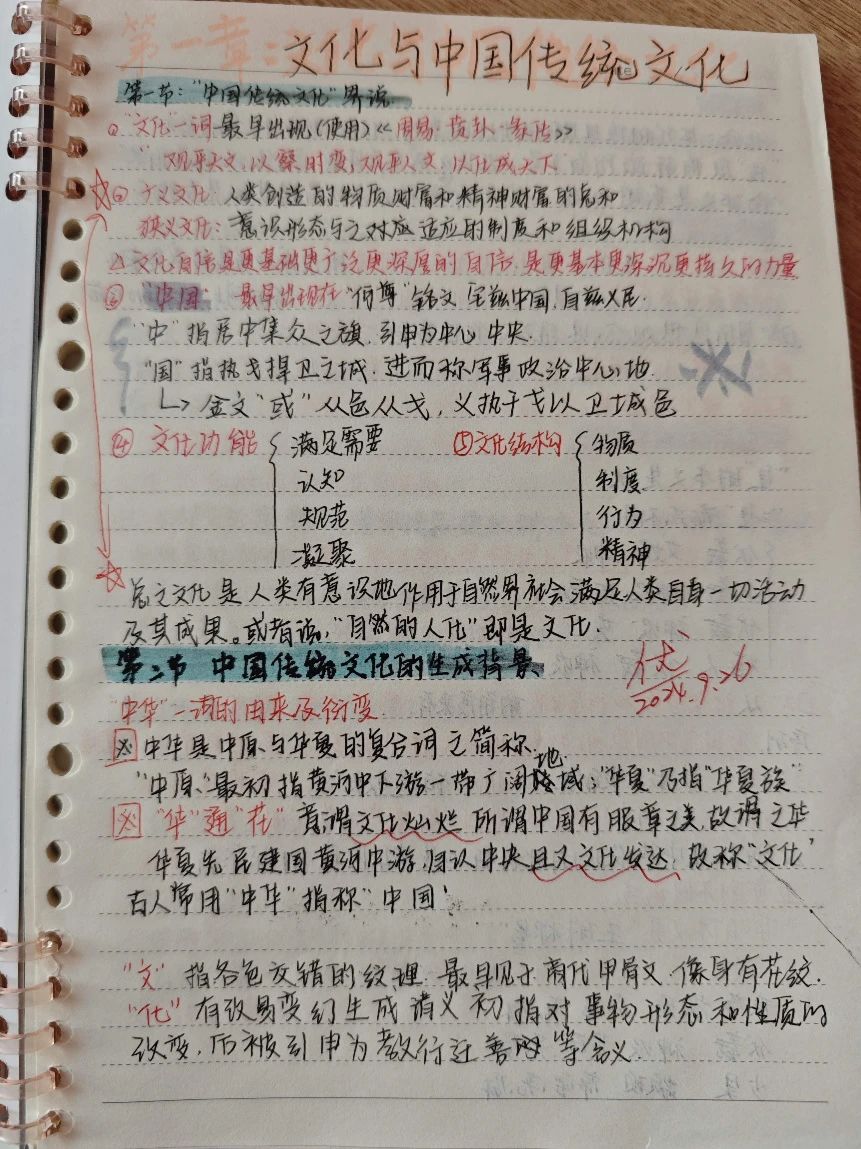 第一章：文化与中国传统文化
第一节："中国传统文化"界说
①"文化"一词最早出现(使用)《周易·贲卦·彖传》
"观乎天文，以察时变，观乎人文，以化成天下
② 广义文化：人类创造的物质财富和精神财富的总和
狭义文化：意识形态与之对应适应的制度和组织机构
△文化自信是更基础更广泛更深层的自信，是更基本更深沉更持久的力量
③"中国"：最早出现在"何尊"铭文 宅兹中国，自兹乂民.
"中"指居中集众之旗，引申为中心 中央.
"国"指执戈捍卫之城. 进而称军事政治中心地
↳金文"或"从邑从戈，义执干戈以卫城邑
④ 文化功能{满足需要 ⑤文化结构{物质
认知 制度
规范 行为
凝聚 精神
总之文化是人类有意识地作用于自然界社会满足人类自身一切活动
及其成果。或者说，"自然的人化"即是文化.
第二节 中国传统文化的生成背景
优
2024.9.26
"中华"一词的由来及衍变
※ 中华是中原与华夏的复合词之简称.
"中原"最初指黄河中下游一带广阔地域；"华夏"乃指"华夏族"
※ "华"通"花" 意谓文化灿烂 所谓中国有服章之美，故谓之华
华夏先民建国黄河中游，自认中央且又文化发达，故称"文化"
古人常用"中华"指称"中国"
"文"指各色交错的纹理 最早见于商代甲骨文，像身有花纹.
"化"有改易变幻生成诸义 初指对事物形态和性质的
改变，后被引申为教行迁善 等含义